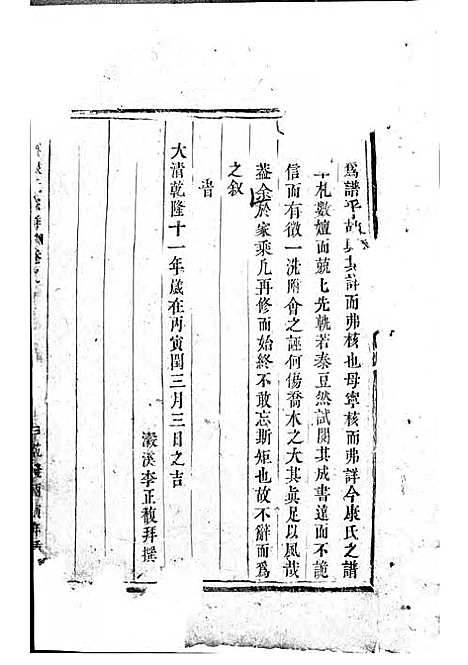 為譜乎故與其詳而弗核也毋寧核而弗詳今康氏之譜
札數燈而兢七先軌若秦豆然試閱其成書達而不詭
信而有徵一洗附會之誣何傷喬木之大其眞足以風哉
蓋余於家乘凡再修而始終不敢忘斯矩也故不辭而為
之叙
旹
大清乾隆十一年歲在丙寅閏三月三日之吉
瀫溪李正馥拜撰